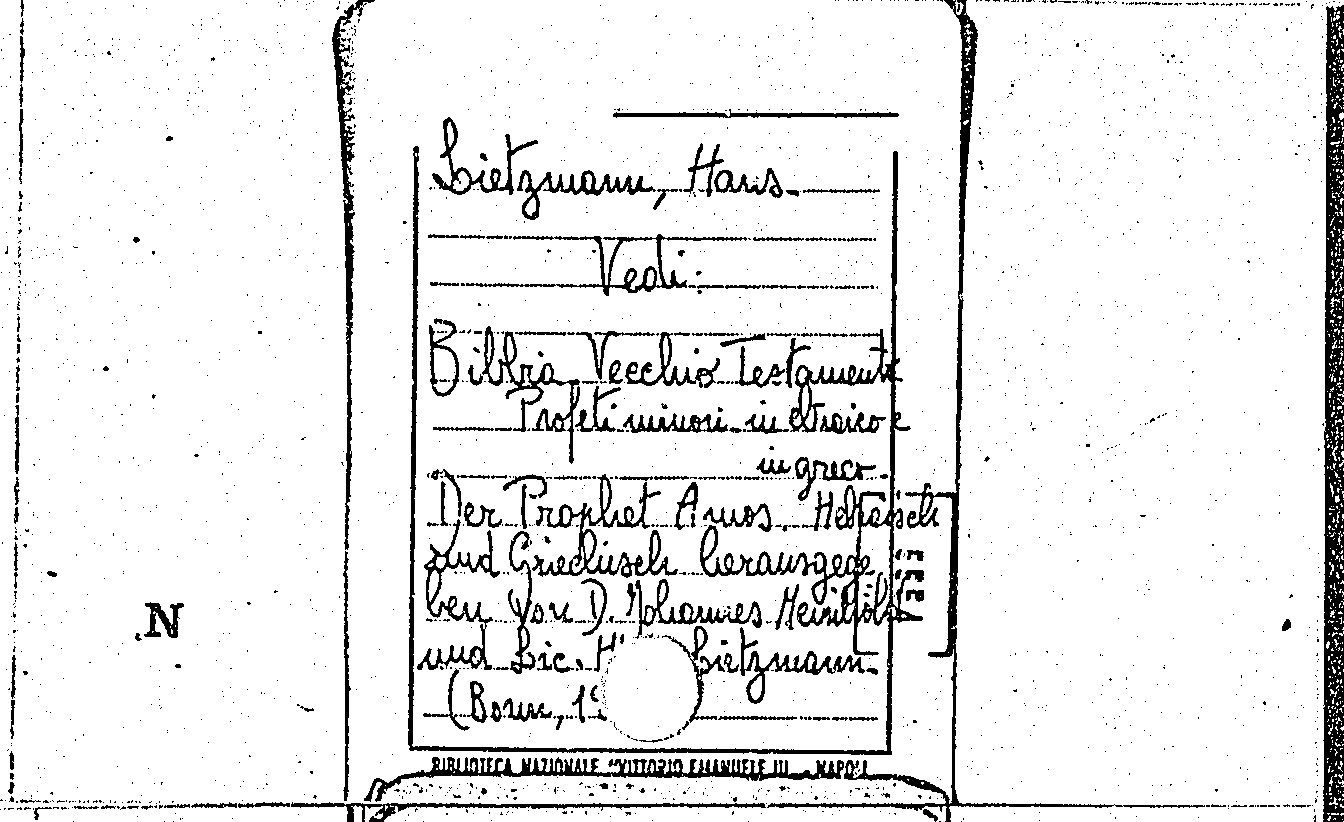 Lietzmann, Hans.
Vedi:
Bibbia Vecchio Testamento
Profeti minori in ebraico e
in greco.
Der Prophet Amos. Hebraisch
und Griechisch herausgege
ben von D. Johannes Meinhold
und Lic. H Lietzmann.
(Bonn, 19
N
BIBLIOTECA NAZIONALE "VITTORIO EMANUELE III - NAPOLI